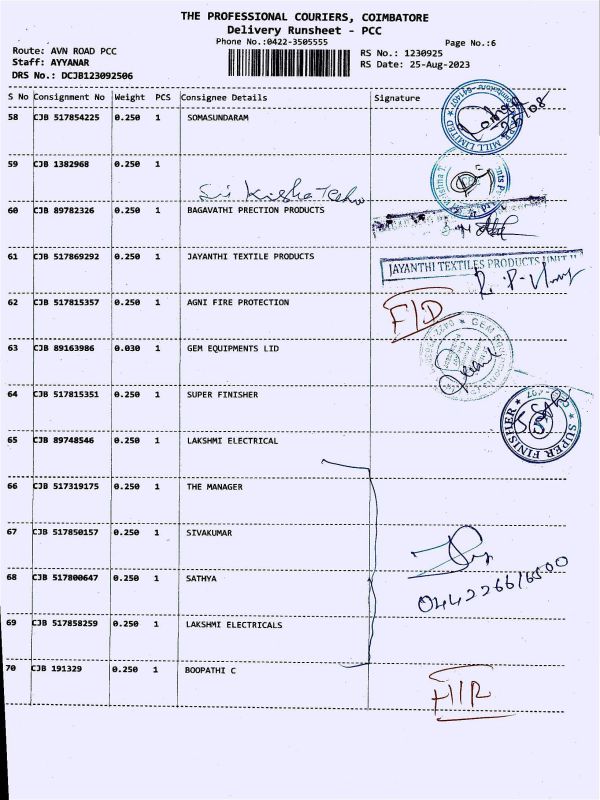 THE PROFESSIONAL COURIERS, COIMBATORE
Delivery Runsheet - PCC
Phone No.:0422-3505555
Page No.:6
Route: AVN ROAD PCC
Staff: AYYANAR
DRS No.: DCJB123092506
RS No.: 1230925
RS Date: 25-Aug-2023
S No Consignment No Weight PCS Consignee Details Signature
58 CJB 517854225 0.250 1 SOMASUNDARAM
59 CJB 1382968 0.250 1
60 CJB 89782326 0.250 1 BAGAVATHI PRECTION PRODUCTS
61 CJB 517869292 0.250 1 JAYANTHI TEXTILE PRODUCTS
JAYANTHI TEXTILES PRODUCTS UNIT II
62 CJB 517815357 0.250 1 AGNI FIRE PROTECTION
F/D
63 CJB 89163986 0.030 1 GEM EQUIPMENTS LTD
64 CJB 517815351 0.250 1 SUPER FINISHER
SUPER FINISHER
65 CJB 89748546 0.250 1 LAKSHMI ELECTRICAL
66 CJB 517319175 0.250 1 THE MANAGER
67 CJB 517850157 0.250 1 SIVAKUMAR
68 CJB 517800647 0.250 1 SATHYA
044226616500
69 CJB 517858259 0.250 1 LAKSHMI ELECTRICALS
70 CJB 191329 0.250 1 BOOPATHI C